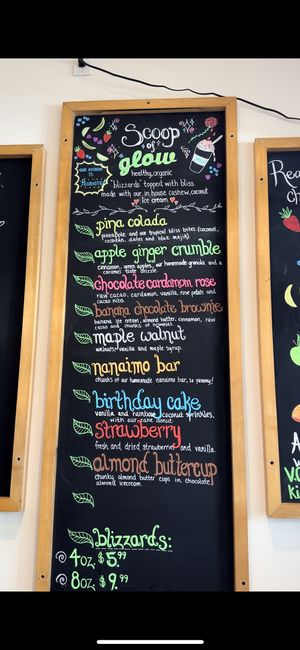 Scoop
of
glow
healthy, organic
"blizzards" topped with bliss.
made with our in house cashew, coconut
ice cream
piña colada
pineapple and our tropical bliss bites (coconut,
cashews, dates and blue majik)
apple ginger crumble
cinnamon, green apples, our homemade granola and a
caramel date drizzle
chocolate cardamom rose
raw cacao, cardamon, vanilla, rose petals and
cacao nibs.
banana chocolate brownie
banana ice cream, almond butter, cinnamon, raw
cacao and chunks of brownies
maple walnut
walnuts, vanilla and maple syrup.
nanaimo bar
chunks of our homemade nanaimo bar, so yummy!
birthday cake
vanilla and rainbow coconut sprinkles,
with our cake donut
strawberry
fresh and dried strawberries and vanilla.
almond buttercup
chunky almond butter cups in chocolate
almond icecream
blizzards:
4oz $5.99
8oz $9.99
Rea
ch
A
V.G
Ki